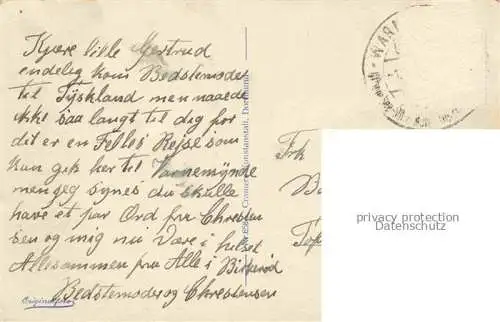 Kjære lille Gertrud
endelig kom Bedstemoder
til Tyskland men naaede
ikke saa langt til dig for
dit er en Felles Rejse som
kun gik her til Varnemynde
men jeg synes du skulle
have et par Ord fra Chresten
sen og mig nu Være i hilset
Allesammen fra Alle i Birkerød
Bedstemoder og Chrestensen
Originalfoto
Cramers Kunstanstalt, Dortmund
WARN
Frk
privacy protection
Datenschutz